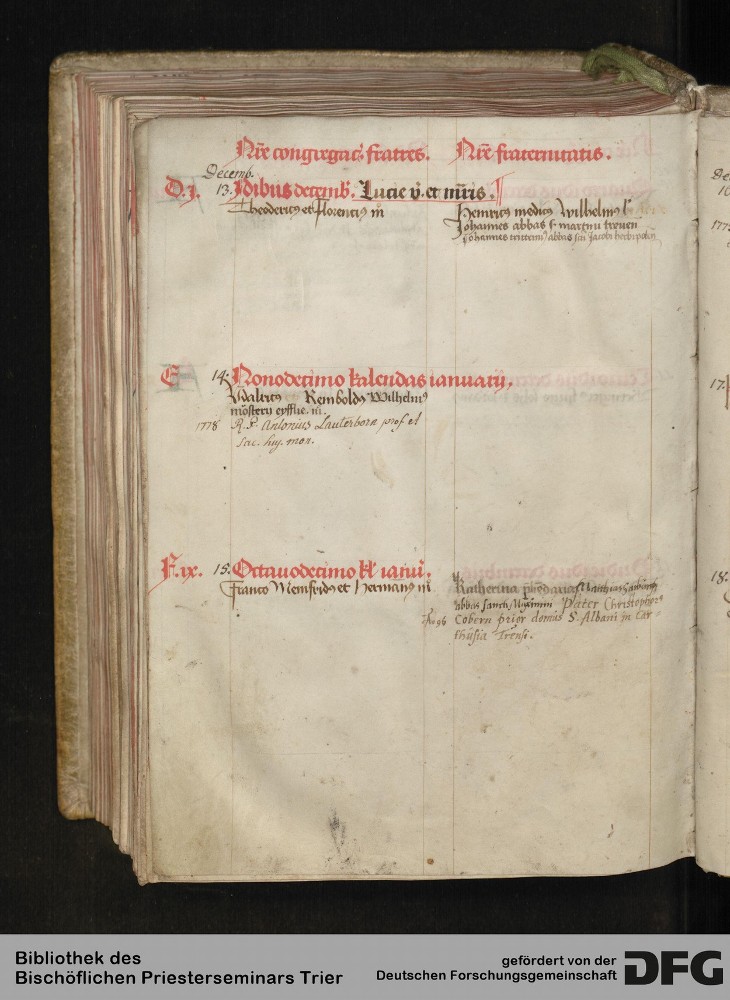 Nr̄e congregac̄. fratres. Nr̄e fraternitatis.
Decemb.
D. j. 13. Idibus decemb̄. Lucie v̄. et mr̄is.
Theodericꝰ et Florenciꝰ m̄
Heinricus medicus Wilhelmꝰ
Johannes abbas s. martini treueñ
Johannes abbas sc̄i Jacobi
E 14. Nonodecimo kalendas ianuarij.
Waltrus Remboldꝰ Wilhelmꝰ
1778 R. P. Antonius Lauterborn prof et
Sac. huj. mon.
F. ix. 15. Octauodecimo kl̄ ianu.
Franco Memfridꝰ et Hermanꝰ m̄
Katherina
abbas sancti Maximini Pater Christophorꝰ
Cobern prior domus S. Albani in Car-
thusia Trensi.
De
1775
17.
18.
Bibliothek des
Bischöflichen Priesterseminars Trier
gefördert von der
Deutschen Forschungsgemeinschaft
DFG